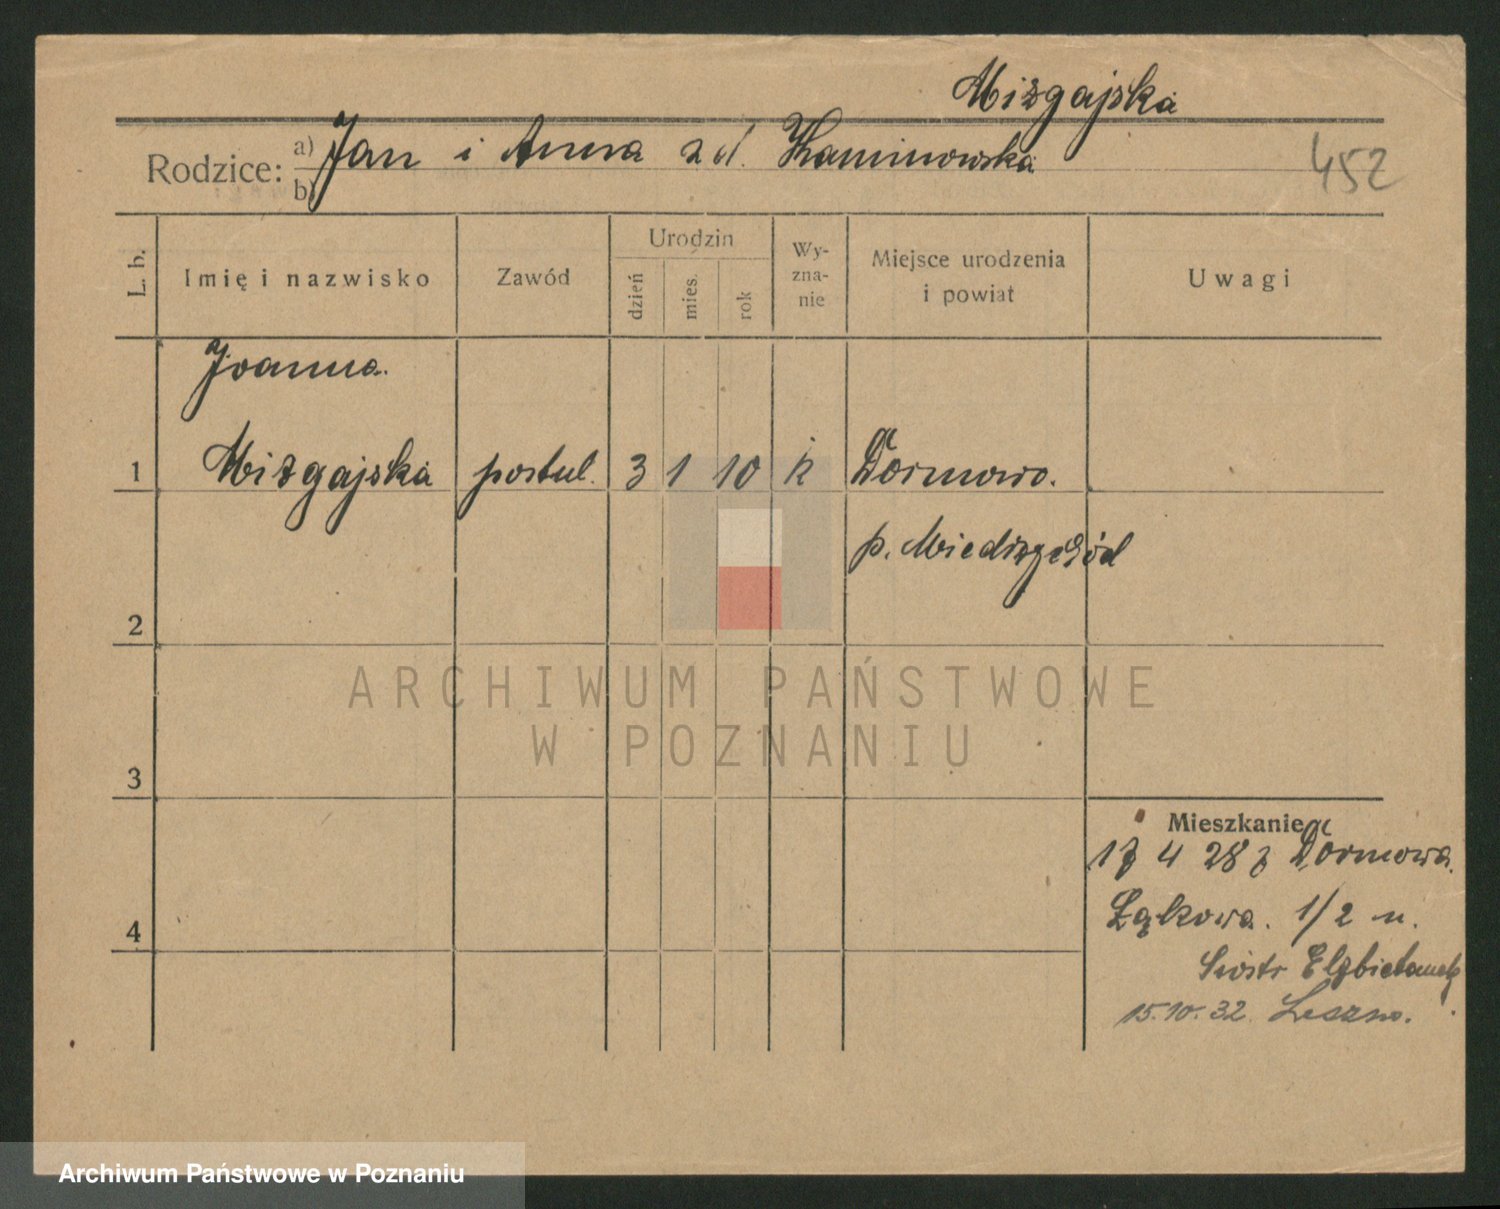 Mizgajska
Rodzice: a) Jan i Anna z d. Kaminowska
b)
452
L. b. Imię i nazwisko Zawód Urodzin dzień mies. rok Wy-zna-nie Miejsce urodzenia i powiat Uwagi
Joanna
1 Mizgajska postul. 3 1 10 k Dormowo.
p. Miedzychód
2
ARCHIWUM PAŃSTWOWE
W POZNANIU
3
Mieszkanie
4 28 z Dormowa.
Łąkowa. 1/2 u.
4
Siostr Elżbietanek
15.10.32 Leszno.
Archiwum Państwowe w Poznaniu